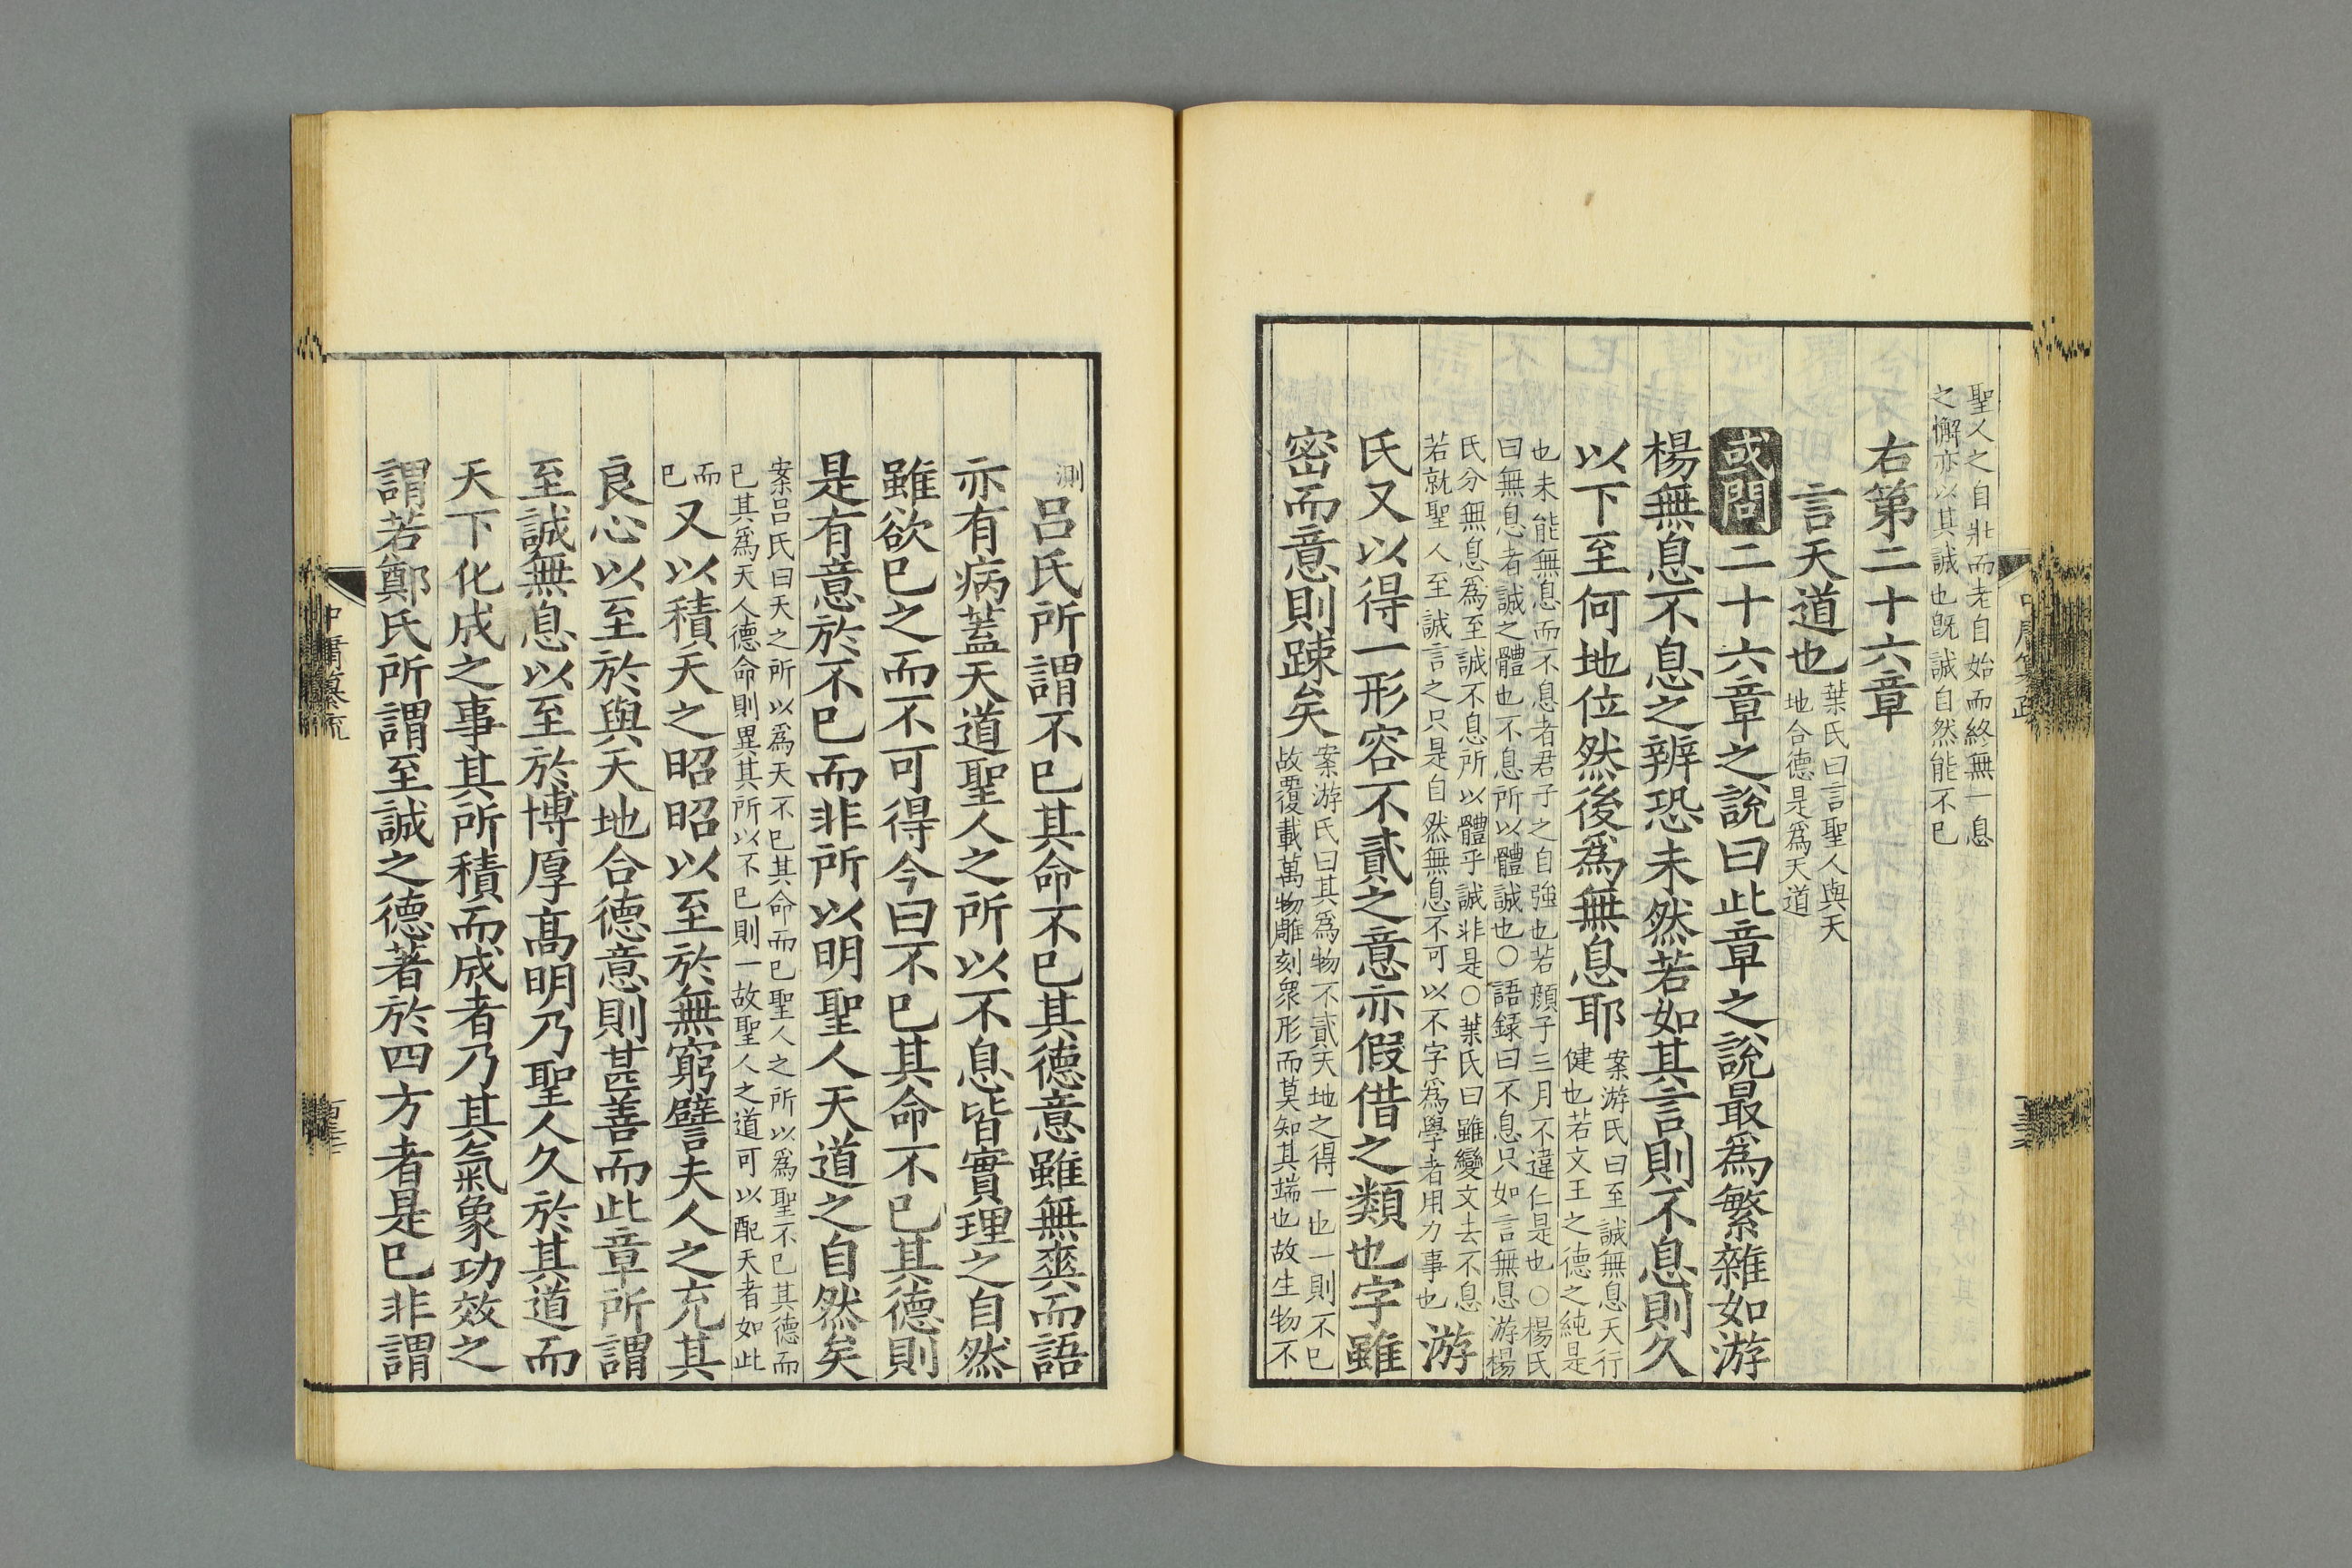 聖人之自壯而老自始而終無一息
之懈亦以其誠也旣誠自然能不已
右第二十六章
言天道也
葉氏曰言聖人與天
地合德是爲天道
或問二十六章之說曰此章之說最爲繁雜如游
楊無息不息之辨恐未然若如其言則不息則久
以下至何地位然後爲無息耶
案游氏曰至誠無息天行
健也若文王之德之純是
也未能無息而不息者君子之自強也若顔子三月不違仁是也○楊氏
曰無息者誠之體也不息所以體誠也○語録曰不息只如言無息游楊
氏分無息爲至誠不息所以體乎誠非是○葉氏曰雖變文去不息
若就聖人至誠言之只是自然無息不可以不字爲學者用力事也
游
氏又以得一形容不貳之意亦假借之類也字雖
密而意則踈矣
案游氏曰其爲物不貳天地之得一也一則不已
故覆載萬物雕刻衆形而莫知其端也故生物不
測
呂氏所謂不已其命不已其德意雖無爽而語
亦有病蓋天道聖人之所以不息皆實理之自然
雖欲已之而不可得今曰不已其命不已其德則
是有意於不已而非所以明聖人天道之自然矣
案呂氏曰天之所以爲天不已其命而已聖人之所以爲聖不已其德而
已其爲天人德命則異其所以不已則一故聖人之道可以配天者如此
而
已
又以積天之昭昭以至於無窮譬夫人之充其
良心以至於與天地合德意則甚善而此章所謂
至誠無息以至於博厚髙明乃聖人久於其道而
天下化成之事其所積而成者乃其氣象功效之
謂若鄭氏所謂至誠之德著於四方者是已非謂
中庸纂疏